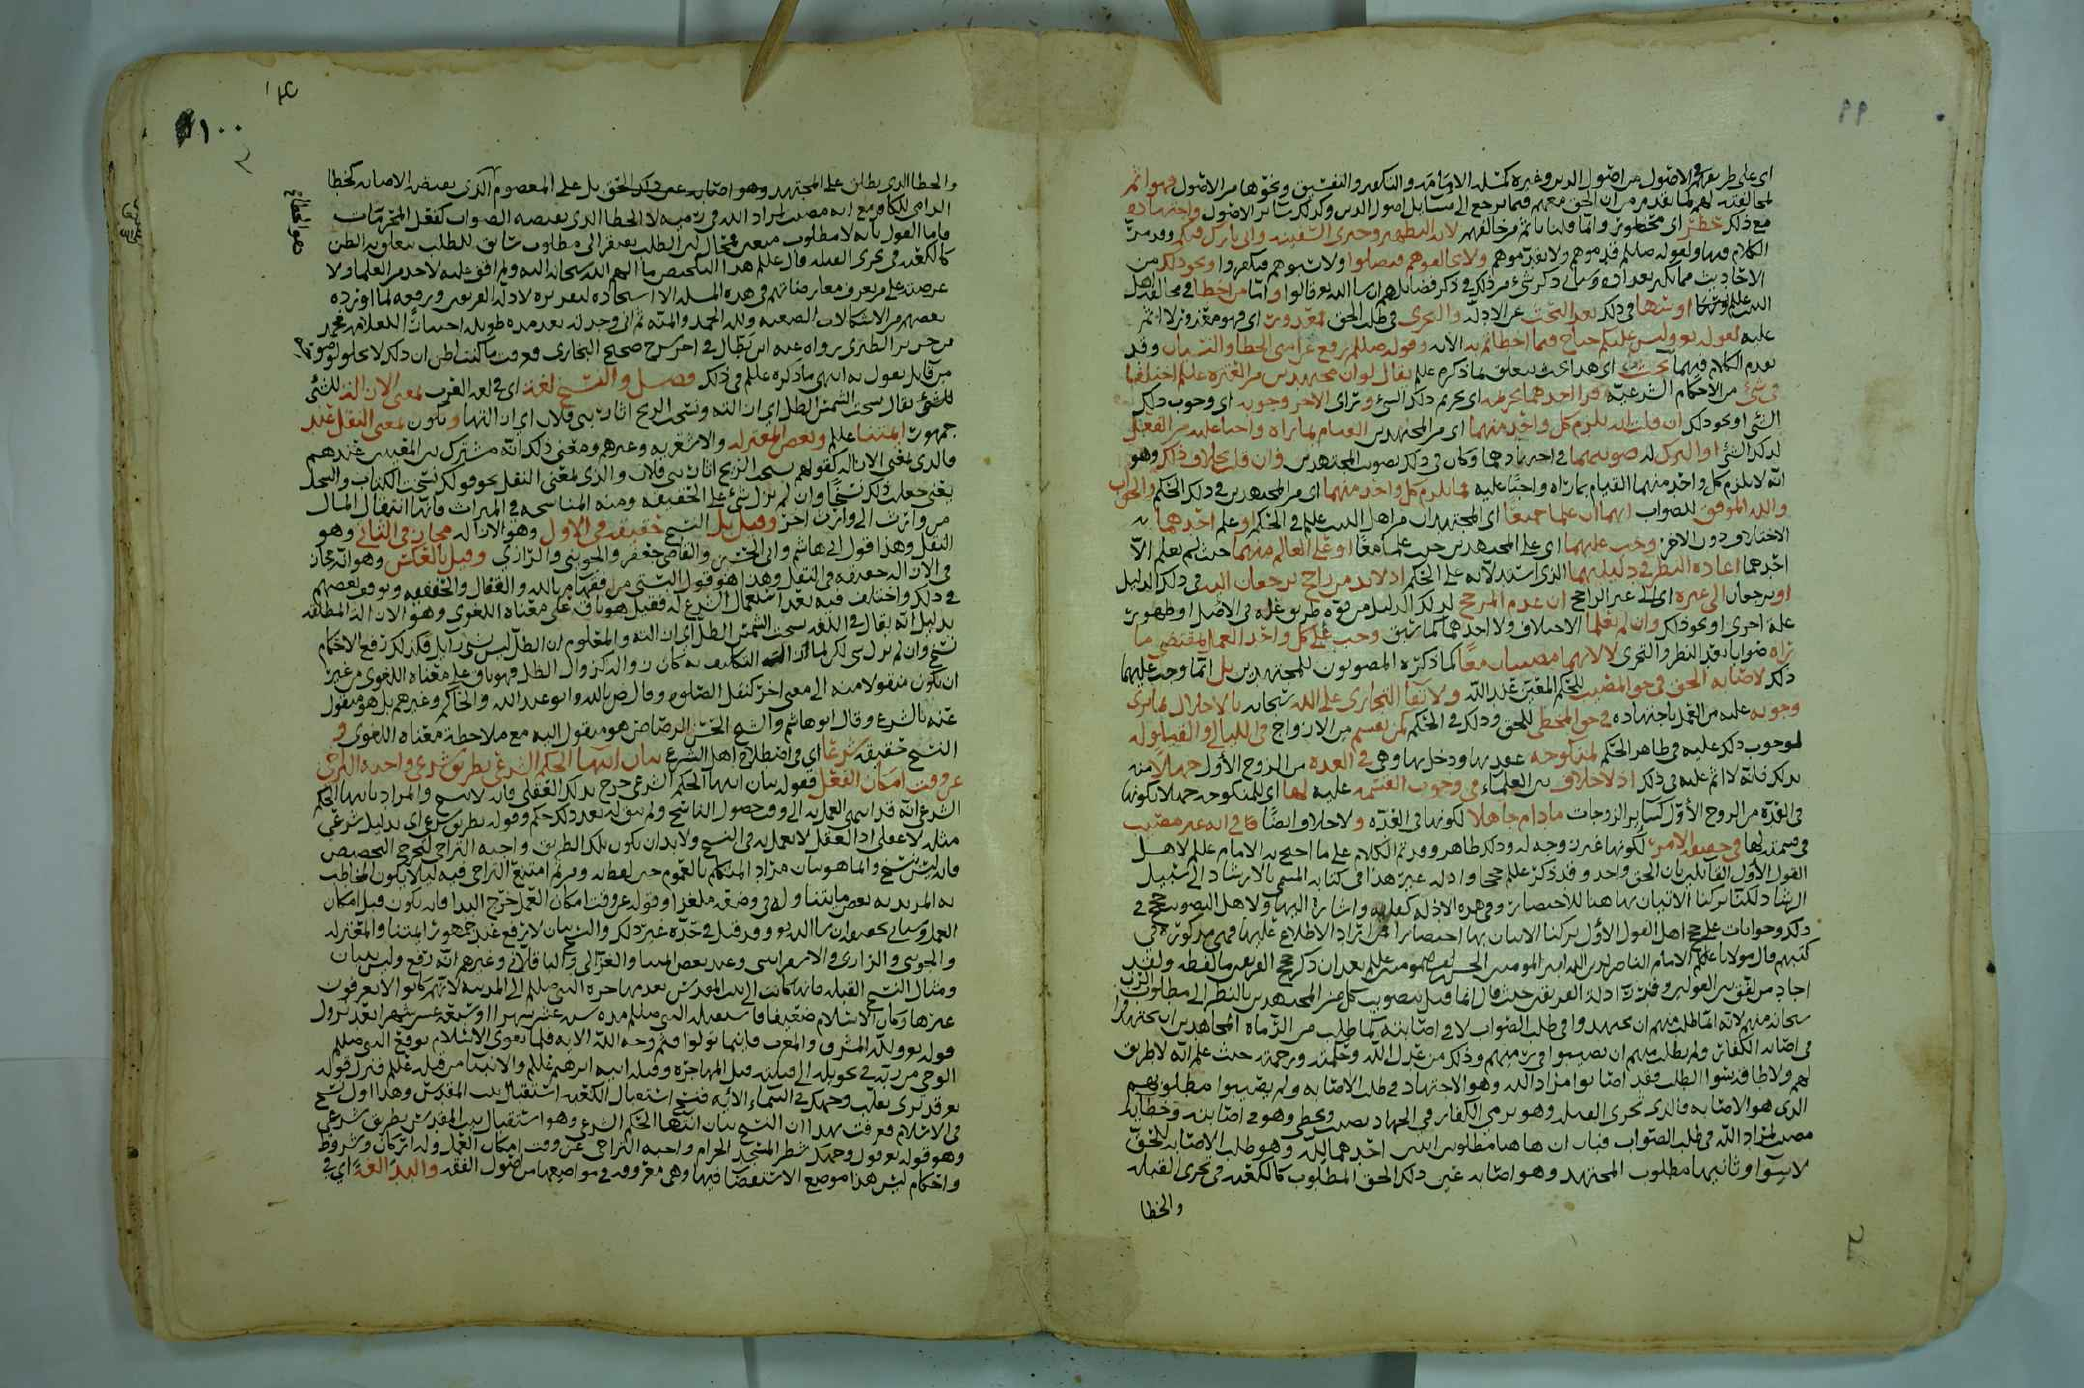 ٩٩
لمخالفته لهم لما تقدم من ان الحق معهم فيما يرجع الى مسائل اصول الدين وكذلك سائر الاصول واجتهاده
مع ذلك خطر اى محظور وانما قلنا باثم من خالفهم لاية التطهير وخبرى السفينة وانى تارك فيكم وقد مر
الكلام فيها ولقوله صللم قدموهم ولا تقدموهم ولا تخالفوهم فتضلوا ولا تشتموهم فتكفروا ونحو ذلك من
عليه لقوله تع وليس عليكم جناح فيما اخطاتم به الآية وقوله صللم رفع عن امتى الخطا والنسيان وقد
فى شئ من الاحكام الشرعية فراا احدهما تحريمه اى تحريم ذلك الشئ وراى الاخر وجوبه اى وجوب ذلك
الشئ او نحو ذلك ان قلت انه يلزم كل واحد منهما اى من المجتهدين القيام بما راه واجبا عليه من الفعل
لذلك الشئ او الترك له صوبتهما فى اجتهادهما وكان فى ذلك تصويب المجتهدين وان قلت بخلاف ذلك وهو
انه لا يلزم كل واحد منهما القيام بما راه واجبا عليه فما يلزم كل واحد منهما اى من المجتهدين فى ذلك الحكم والجواب
والله الموفق للصواب انهما ان علما جميعا اى المجتهدان من اهل البيت علم فى الحكم او علم احدهما به
الاختلاف دون الآخر وجب عليهما اى على المجتهدين حيث علما معا او على العالم منهما حيث لم يعلم الا
احدهما اعادة النظر فى دليليهما الذى استدلا به على الحكم اذ لا بد من راجح يرجعان اليه فى ذلك الدليل
او يرجعان الى غيره اى الى غير الراجح ان عدم المرجح لذلك الدليل من قوة طريق علة فى الاصل او ظهور
علة اخرى او نحو ذلك وان لم يعلما الاختلاف ولا احدهما كما سبق وجب على كل واحد العمل بمقتضى ما
راه صوابا بعد النظر والتحرى لا لانهما مصيبان معا كما ذكره المصوبون للمجتهدين بل انما وجب عليهما
ذلك لاصابة الحق فى حق المصيب للحكم المعين عند الله ولابتغا التحارى على الله سبحانه بالاخلال بما يرى
وجوبه عليه من العمل باجتهاده فى حق المخطى للحق وذلك فى الحكم كمن يقسم من الازواج فى الليالى والقيلولة
لوجوب ذلك عليه فى ظاهر الحكم لمنكوحة عقد بها ودخل بها وهى فى العدة من الزوج الأول جهلا منه
بذلك فانه لا اثم عليه فى ذلك اذ لا خلاف بين العلماء فى وجوب القسمة عليه لها اى للمنكوحة جهلا لكونها
فى العدة من الزوج الأول كسائر الزوجات مادام جاهلا لكونها فى العدة ولا خلاف ايضا فى انه غير مصيب
فى قسمته لها فى حقيقة الامر لكونها غير زوجة له وذلك ظاهر وقد تم الكلام على ما احتج به الامام علم لاهل
القول الأول القائلين بان الحق واحد وقد ذكر علم حججا وادلة غير هذا فى كتابه المسمى بالارشاد الى سبيل
الرشاد لكنا تركنا الاتيان بها هنا للاختصار وفى هذه الادلة كفاية واشارة اليها ولاهل التصويب حجج فى
ذلك وجوابات على حجج اهل القول الأول تركنا الاتيان بها اختصارا فمن اراد الاطلاع عليها فهى مذكورة فى
اجاد من لفق بين القولين وقد رد ادلة الفريقين حيث قال انما قيل بتصويب كل من المجتهدين بالنظر الى مطلوب الرب
سبحانه منهم لانه انما طلب منهم ان يجتهدوا فى طلب الصواب لا فى اصابته كما طلب من الرماة المجاهدين ان يجتهدوا
فى اصابة الكفار ولم يطلب منهم ان يصيبوا فى رميهم وذلك من عدل الله وحكمته ورحمته حيث علم انه لا طريق
لهم ولا طاقة بتيقنوا الطلب فقد اصابوا مراد الله وهو الاجتهاد فى طلب الاصابة ولم يصيبوا مطلوبهم
الذى هو الاصابة فالذى تحرى القبلة وهو يرمى الكفار فى الجهاد يصيب ويخطى وهو فى اصابته وخطائه
مصيب لمراد الله فى طلب الصواب فبان ان هاهنا مطلوبين اثنين احدهما لله وهو طلب الاصابة للحق
لا سوا وثانيهما مطلوب المجتهد وهو اصابة عين ذلك الحق المطلوب كالكعبة فى تحرى القبلة
والخطا
١٠٠
والخطا الذى يطلق على المجتهد وهو اصابة عين ذلك الحق بل على المعصوم الذى نقيضه الاصابة كخطا
الرامى للكافر مع انه مصيب لمراد الله فى رميه لا الخطا الذى نقيضه الصواب كفعل المحرمات
فاما القول بانه لا مطلوب معين فمحال لان الطلب يفتقر الى مطلوب سابق للطلب يتعلق به الظن
كالكعبة فى تحرى القبلة قال علم هذا التلخيص مما الهم الله سبحانه اليه ولم اقف عليه لاحد من العلما ولا
بعضهم من الاشكالات الصعبة ولله الحمد والمنة ثم انى وجدته بعد مدة طويلة
من جرير الطبرى رواه عنه ابن بطال فى اخر شرح صحيح البخارى فعرفت ما كنت اظن ان ذلك لا يخلو
من قايل يقول به انتهى ما ذكره علم فى ذلك فصل والنسخ لغة اى فى لغة العرب بمعنى الازالة للشئ
للشئ يقال نسخت الشمس الظل اى ازالته ونسخت الريح اثار بنى فلان اى ازالتها ويكون بمعنى النقل عند
جمهور ائمتنا علم وبعض المعتزلة والاشعرية وغيرهم ومعنى ذلك انه مشترك بين المعنيين عندهم
فالذى بمعنى الازالة كقولهم نسخت الريح اثار بنى فلان والذى بمعنى النقل نحو قولك نسخت الكتاب والنحل
يعنى جعلت ذلك نسخا وان لم يزل شئ على الحقيقة ومنه المناسخة فى الميراث فانها انتقال المال
من وارث الى وارث اخر وقيل بل النسخ حقيقة فى الأول وهو الازالة مجاز فى الثانى وهو
النقل وهذا قول ابى هاشم وابى الحسين والقاضى جعفر والجوينى والرازى وقيل بالعكس وهو انه مجاز
فى الازالة حقيقة فى النقل وهذا هو قول البستى من فقهاء م بالله والقفال والحنفية وتوقف بعضهم
فى ذلك واختلف فيه بعد استعمال الشرع له فقيل هو باق على معناه اللغوى وهو الازالة المطلقة
بدليل انه يقال فى اللغة نسخت الشمس الظل اى ازالته والمعلوم ان الظل ليس بشئ زايل فكذلك رفع الاحكام
ان يكون منقولا منه الى معنى اخر كنقل الصلوة وقال ض بالله وابو عبد الله والحاكم وغيرهم بل هو منقول
عنه بالشرع وقال ابو هاشم والشيخ الحسن الرصاص هو منقول اليه مع ملاحظة معناه اللغوى فى
النسخ حقيقة شرعا اى فى اصطلاح اهل الشرع بيان انتها الحكم الشرعى بطريق شرعى واجبة التراخى
عن وقت امكان الفعل فقوله بيان انتها الحكم الشرعى خرج بذلك العقلى فانه لا نسخ والمراد بانتها الحكم
الشرعى انه قد انتهى العمل به الى وقت حصول الناسخ ولم يبق له بعد ذلك حكم وقوله بطريق شرعى اى بدليل شرعى
مثله لا عقلى اذ العقل لا يعمل به فى النسخ ولا بد ان يكون تلك الطريق واجبة التراخى ليخرج التخصيص
فانه ليس بنسخ وانما هو بيان مراد المتكلم بالعموم حين لفظ به ومن ثم امتنع التراخى فيه لئلا يكون المخاطب
به المريد به بعض ما يتناوله فى وضعه ملغزا وقوله عن وقت امكان العمل خرج البدا فانه يكون قبل امكان
العمل وسياتى تحقيقه ان شا الله تع وقد قيل فى حده غير ذلك والنسخ بيان لا رفع عند جمهور ائمتنا والمعتزلة
والجوينى والرازى والاسفرائنى وعند بعض ائمتنا والغزالى والباقلانى وغيرهم انه رفع وليس ببيان
ومثال النسخ القبلة فانها كانت الى بيت المقدس بعد مهاجرة النبى صللم الى المدينة لانهم كانوا لا يعرفون
غيرها وكان الاسلام ضعيفا فاستقبله النبى صللم مدة ستة عشر شهرا او سبعة عشر شهرا بعد نزول
قوله تع ولله المشرق والمغرب فاينما تولوا فثم وجه الله الآية فلما تقوى الاسلام توقع النبى صللم
الوحى من ربه فى تحويله الى قبلته قبل المهاجرة وقبلة ابيه ابرهيم علم والانبيا من قبله علم فنزل قوله
تع قد نرى تقلب وجهك فى السماء الآية فنسخ استقبال الكعبة استقبال بيت المقدس وهذا اول نسخ
فى الاسلام فعرفت بهذا ان النسخ بيان انتها الحكم الشرعى وهو استقبال بيت المقدس بطريق شرعى
وهو قوله تع فول وجهك شطر المسجد الحرام واجبة التراخى عن وقت امكان العمل وله اركان وشروط
واحكام ليس هذا موضع الاستقصا فيها وهى معروفة فى مواضعها من اصول الفقه والبدا لغة اى فى